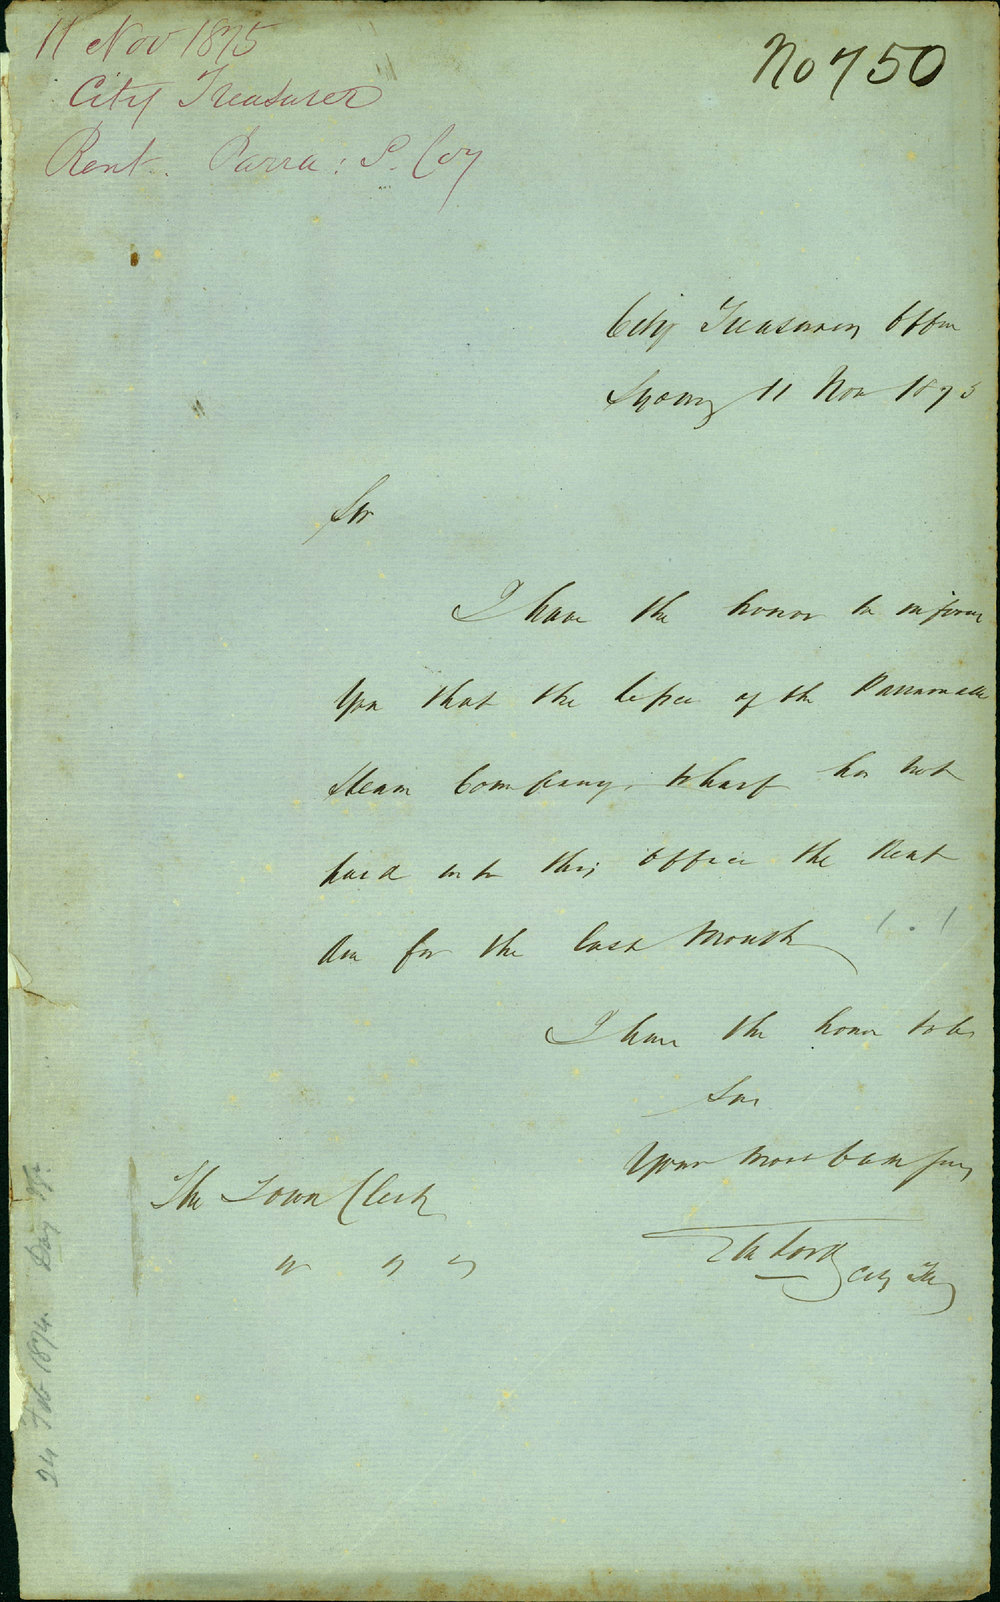 11 Nov 1875
City Treasurer
Rent. Parra: S. Coy
No 750
City Treasurers Office
Sydney 11 Nov 1875
Sir
I have the honor to inform
you that the lessee of the Parramatta
Steam Company's Wharf has not
paid into this office the Rent
due for the last Month
I have the honor to be
Sir
Your most
The Town Clerk
City Tr
24 Feb 1874.